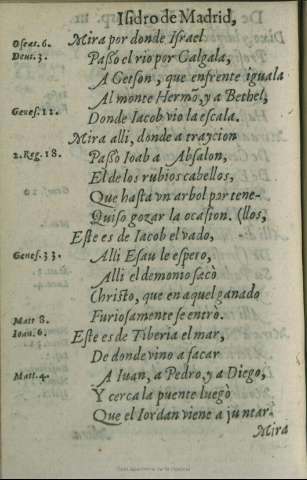 Isidro de Madrid,
Oseas. 6. Mira por donde Israel
Deut. 3. Passo el rio por Galgala,
A Getson, que enfrente iguala
Al monte Hermo, y a Bethel,
Genes. 11. Donde Iacob vio la escala.
Mira alli, donde a traycion
2. Reg. 18. Passo Ioab a Absalon,
El de los rubios cabellos,
Que hasta vn arbol por tene-
Quiso gozar la ocasion. (llos,
Este es de Iacob el vado,
Genes. 33. Alli Esau le espero,
Alli el demonio sacò
Christo, que en aquel ganado
Matt 8. Furiosamente se entrò.
Ioan. 6. Este es de Tiberia el mar,
De donde vino a sacar
Matt. 4. A Iuan, a Pedro, y a Diego,
Y cerca la puente luegò
Que el Iordan viene a juntar.
Mira